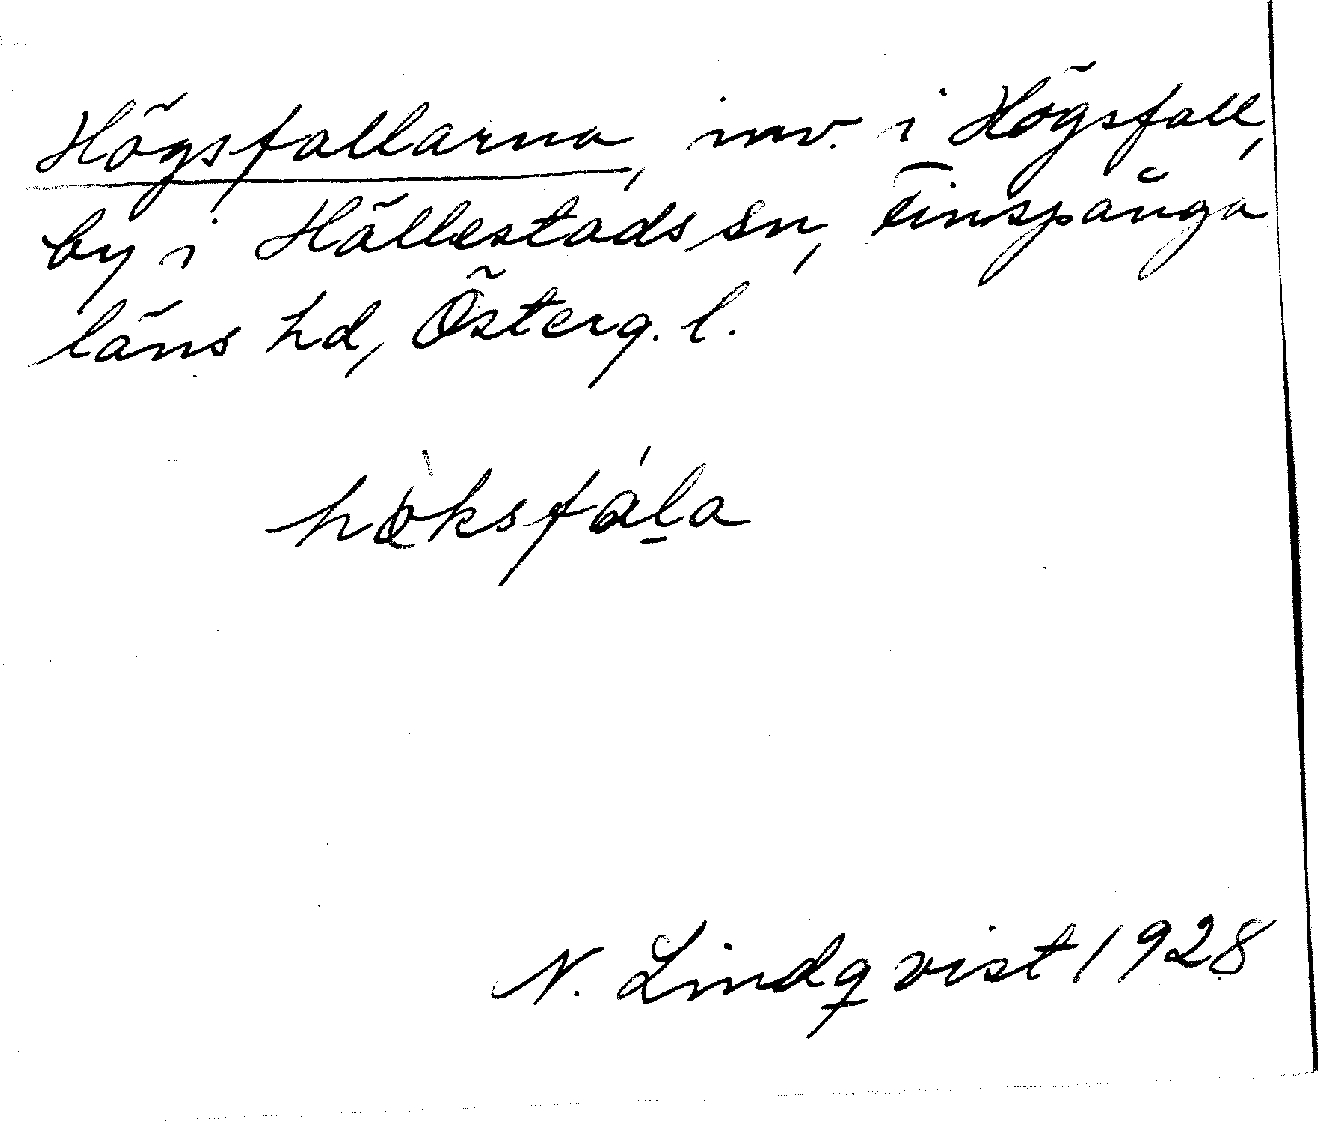 Högsfallarna, inv. i Högsfall,
by i Hällestads sn, Finspånga
läns hd, Österg. l.
höksfála
N. Lindqvist 1928